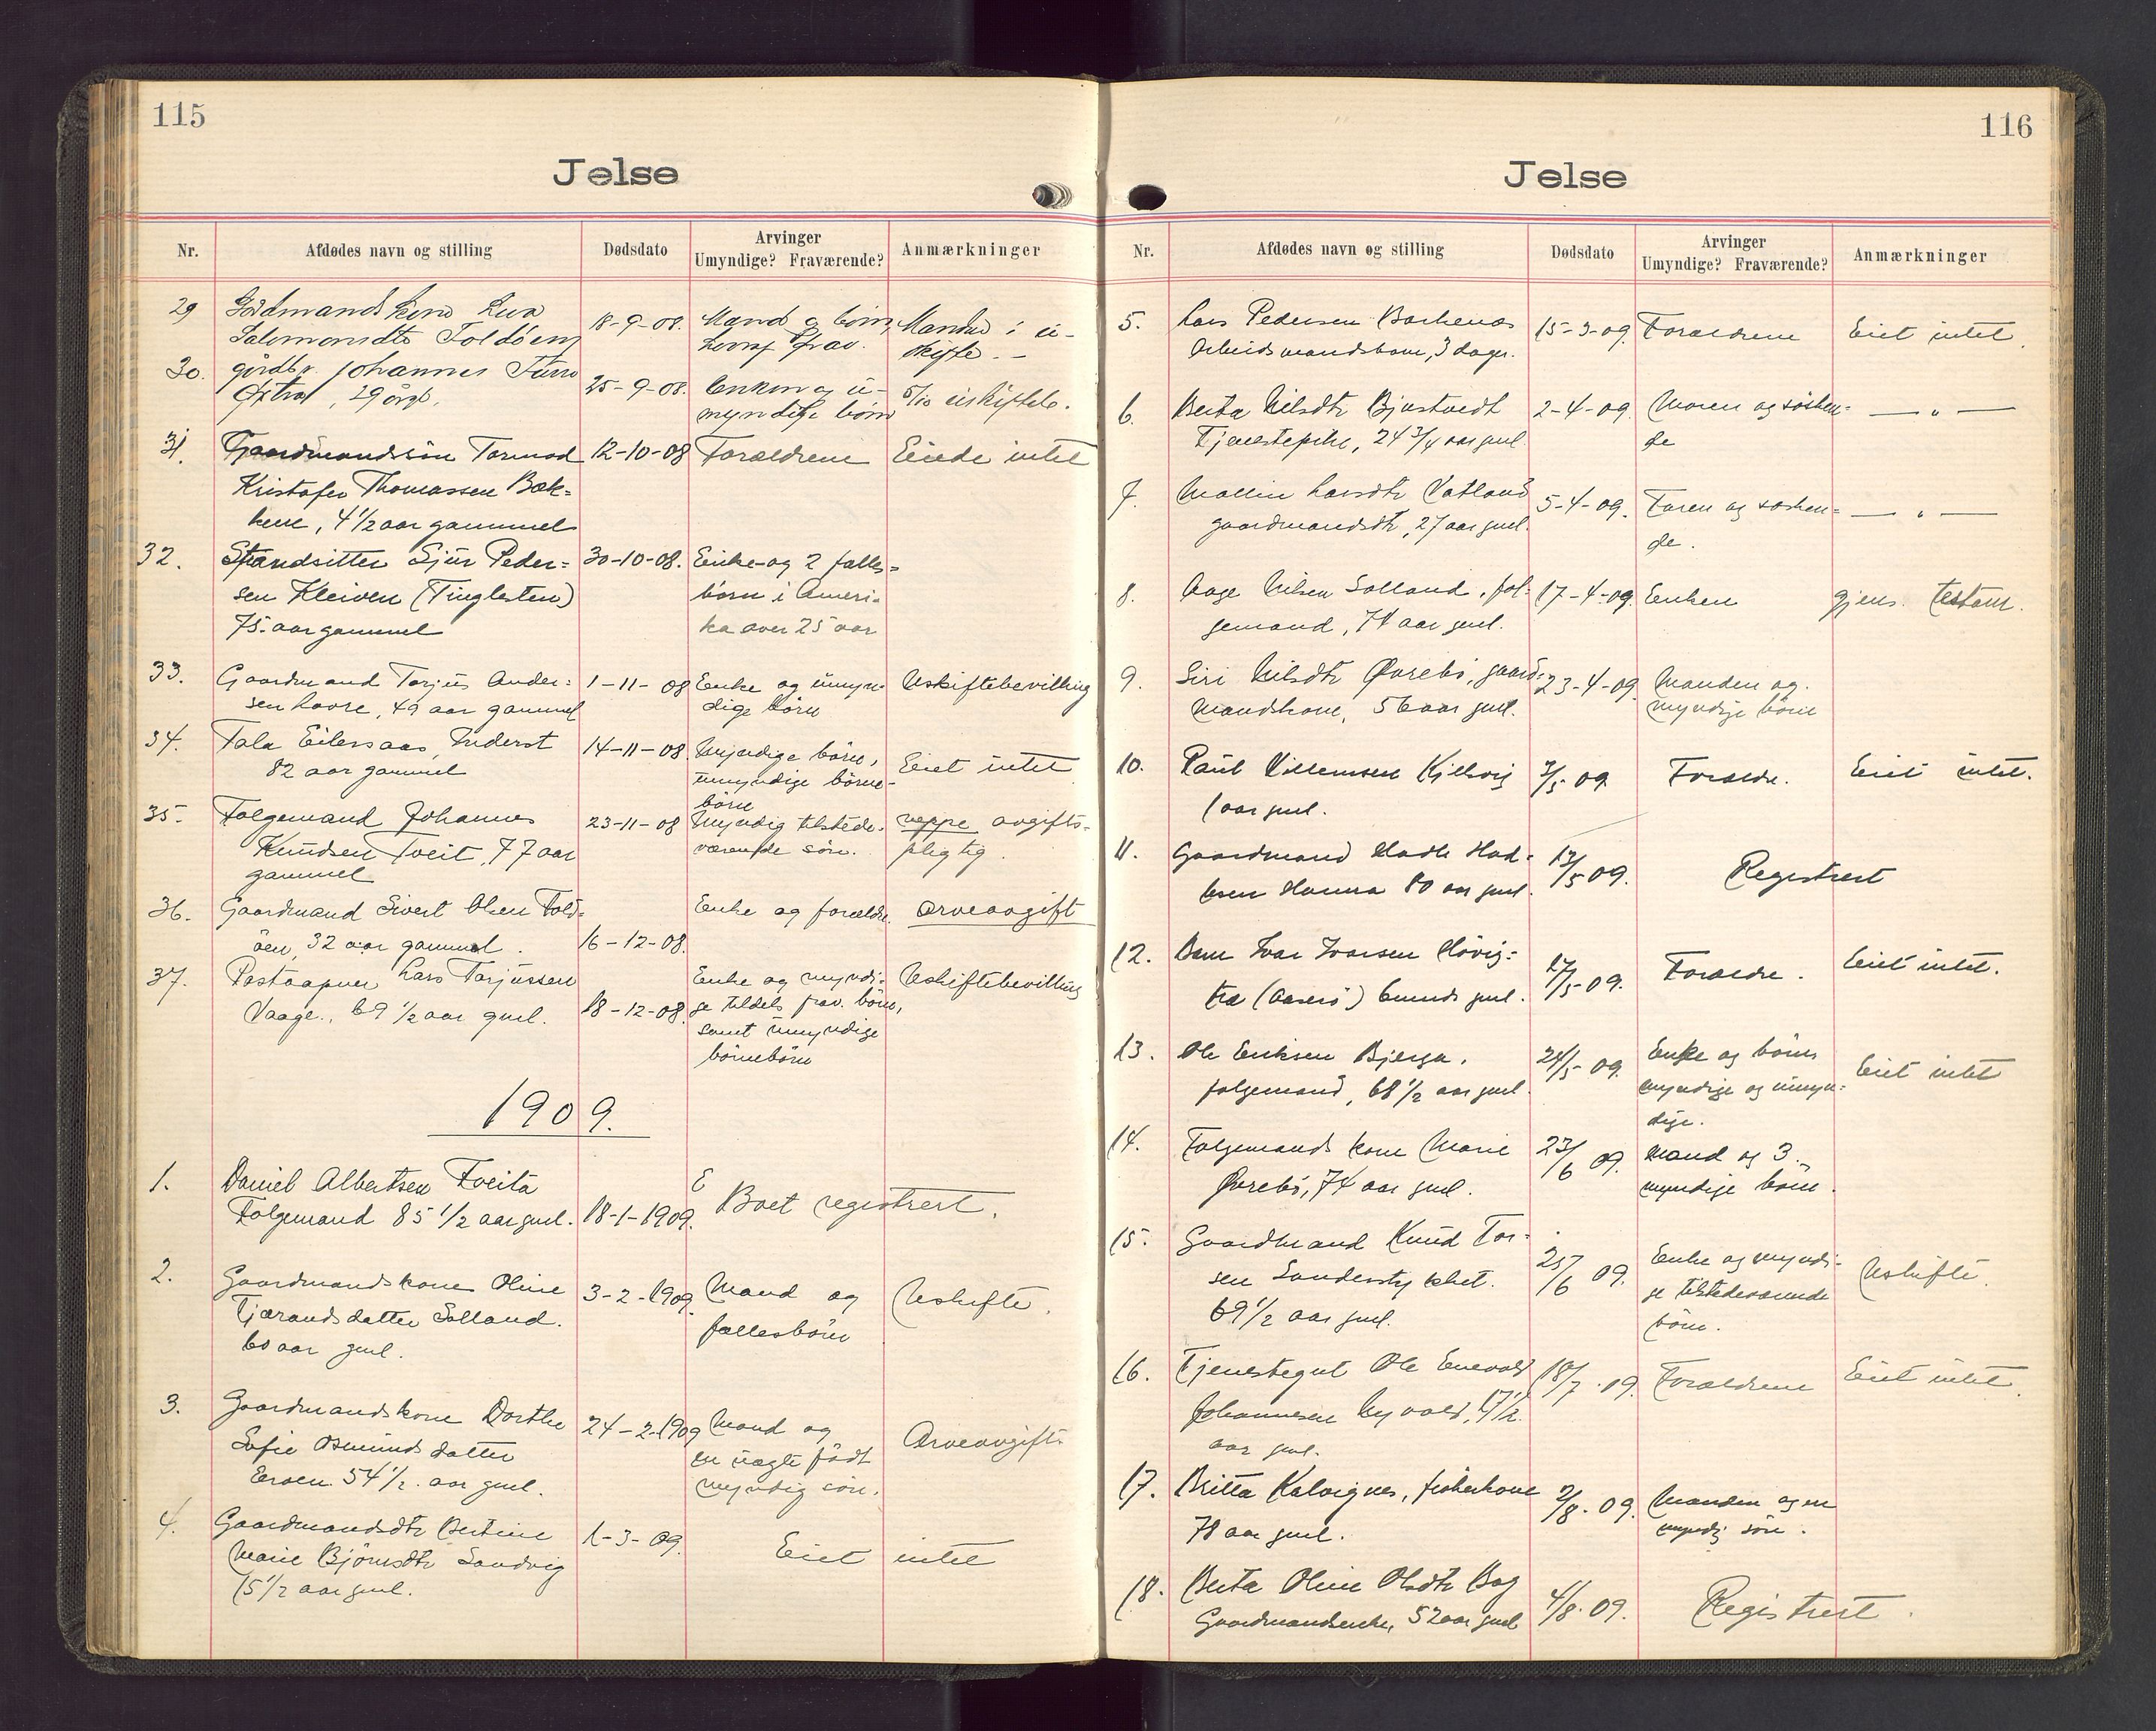 115
Jelse
Nr. Afdødes navn og stilling Dødsdato Arvinger Umyndige? Fraværende? Anmærkninger
29 Gårdmandskone
Salomonsdtr Foldöen 18-9-08. Mand og börn, Manden i u-
skifte.-
30. gårdbr. Johannes
29 årgl. 25-9-08. Enken og u- 5/10 uskiftebv.
myndige börn
31. Gaardmandssön Tormod 12-10-08 Forældrene Eiede intet
Kristofer Thomassen Bæk-
kene, 4 1/2 aar gammel
32. Strandsitter Sjur Peder= 30-10-08. Enke og 2 fælles=
sen Kleiven (Tinglesten) börn i Ameri-
75 aar gammel ka over 25 aar
33. Gaardmand Torjus Ander= 1-11-08 Enke og umyn- Uskiftebevilling
sen Lovre, 49 aar gammel dige börn
34. Tala Eilersaas, Inderst 14-11-08. Myndige börn, Eiet intet
82 aar gammel umyndige börne-
börn
35. Folgemand Johannes 23-11-08 Myndig tilstede- neppe avgifts-
Knudsen Tveit, 77 aar værende sön. pligtig.
gammel
36. Gaardmand Sivert Olsen Fold= Enke og forældre. Arveavgift
öen, 32 aar gammel. 16-12-08.
37. Postaapner Lars Torjussen Enke og myndi- Uskiftebevilling
Vaage, 69 1/2 aar gml. 18-12-08. ge tildels frav. börn,
samt umyndige
börnebörn
1909.
1. Daniel Albertsen Tveita E
Folgemand 85 1/2 aar gml. 18-1-1909. Boet registrert.
2. Gaardmandskone Oline 3-2-1909. Mand og Uskifte.
Tjærandsdatter Solland. fællesbörn
60 aar gml.
3. Gaardmandskone Dorthe 24-2-1909 Mand og Arveavgift.
Sofie Osmundsdatter en uægte födt
54 1/2 aar gml. myndig sön.
4. Gaardmandsdtr Bertine 1-3-09. Eiet intet
Marie Björnsdtr Sandvig
15 1/2 aar gml.
116
Jelse
Nr. Afdødes navn og stilling Dødsdato Arvinger Umyndige? Fraværende? Anmærkninger
5. Lars Pedersen Barkenæs 15-3-09. Forældrene Eiet intet.
Arbeidsmandsbarn, 3 dager.
6. Berta Nilsdtr Bjustvedt 2-4-09. Moren og sösken= — " —
Tjenestepike, 24 3/4 aar gml. de
7. Mallin Larsdtr Vatland 5-4-09. Faren og sösken= — " —
gaardmandsdtr, 27 aar gml. de.
8. Aage Nilsen Solland, fol- 17-4-09. Enken gjens. testam.
gemand, 74 aar gml.
9. Siri Nilsdtr Øvrebö, gaard- 23-4-09 Manden og
mandskone, 56 aar gml. myndige börn
10. Paul Villemsen Kjölvig 3/5 09 Forældre. Eiet intet.
1 aar gml.
11. Gaardmand Hadle Had= 13/5 09. Registrert
lesen Hamra 80 aar gml.
12. Barn Ivar Ivarsen Hövig= 17/5-09. Forældre. Eiet intet.
træ 6 mnds gml.
13. Ole Eriksen Bjerga, 24/5-09. Enke og börn Eiet intet
folgemand, 68 1/2 aar gml. myndige og umyn=
dige.
14. Folgemands kone Marie 23/6 09. Mand og 3
Øvrebö, 74 aar gml. myndige börn.
15. Gaardmand Knud Tor- 25/6 09. Enke og myndi- Uskifte.
sen Sanderstykket. ge tilstedeværende
69 1/2 aar gml. börn.
16. Tjenestegut Ole Enevald 18/7.09. Forældrene Eiet intet.
Johannesen Nyvold, 17 1/2
aar gml.
17. Britta Kalvignes, fiskerkone 2/8.09. Manden og en
78 aar gml. myndig sön.
18. Berta Oline Olsdtr Bog 4/8.09. Registrert.
Gaardmandsenke, 52 aar gml